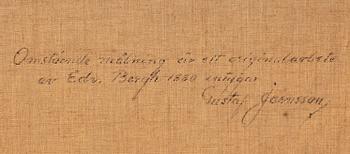 Omstående målning är ett originalarbete
av Edv. Bergh 1880 intygar
Gustaf